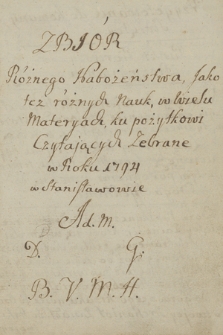 ZBIÓR
Różnego Nabożeństwa, Jako
też różnych Nauk, w Wielu
Materyach, ku pożytkowi
Czytających Zebrane
w Roku 1794
w Stanisławowie
Ad. M.
D. G:
B. V. M. H.